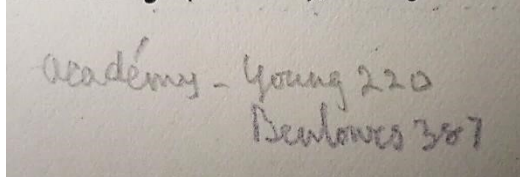 académy - Young 220
Benlowes 387